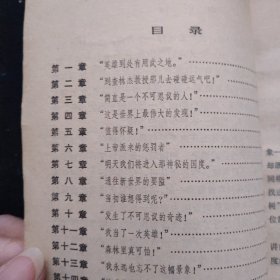 目录
第一章 “英雄到处有用武之地。”
第二章 “到查林杰教授那儿去碰碰运气吧！”
第三章 “简直是一个不可思议的人！”
第四章 “这是世界上最伟大的发现！”
第五章 “值得怀疑！”
第六章 “上帝派来的惩罚者”
第七章 “明天我们将进入那神秘的国度。”
第八章 “通往新世界的要隘”
第九章 “当初谁想得到呢？”
第十章 “发生了不可思议的奇迹！”
第十一章 “我当了一次英雄！”
第十二章 “森林里真可怕！”
第十三章 “我永远也忘不了这幅景象！”